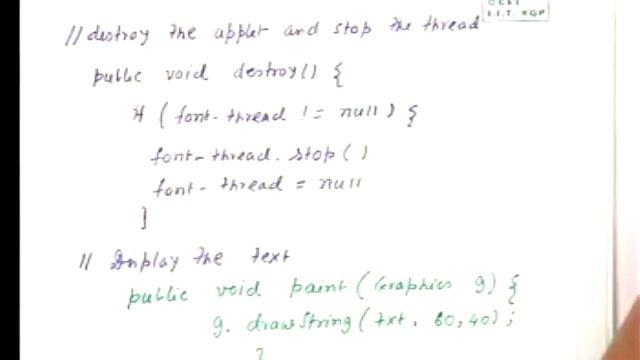 CCET
I.I.T. KGP
// destroy the applet and stop the thread
public void destroy() {
if ( font-thread != null ) {
font-thread. stop ( )
font- thread = null
}
// Display the text
public void paint ( Graphics g) {
g. drawString ( txt, 60, 40) ;
}